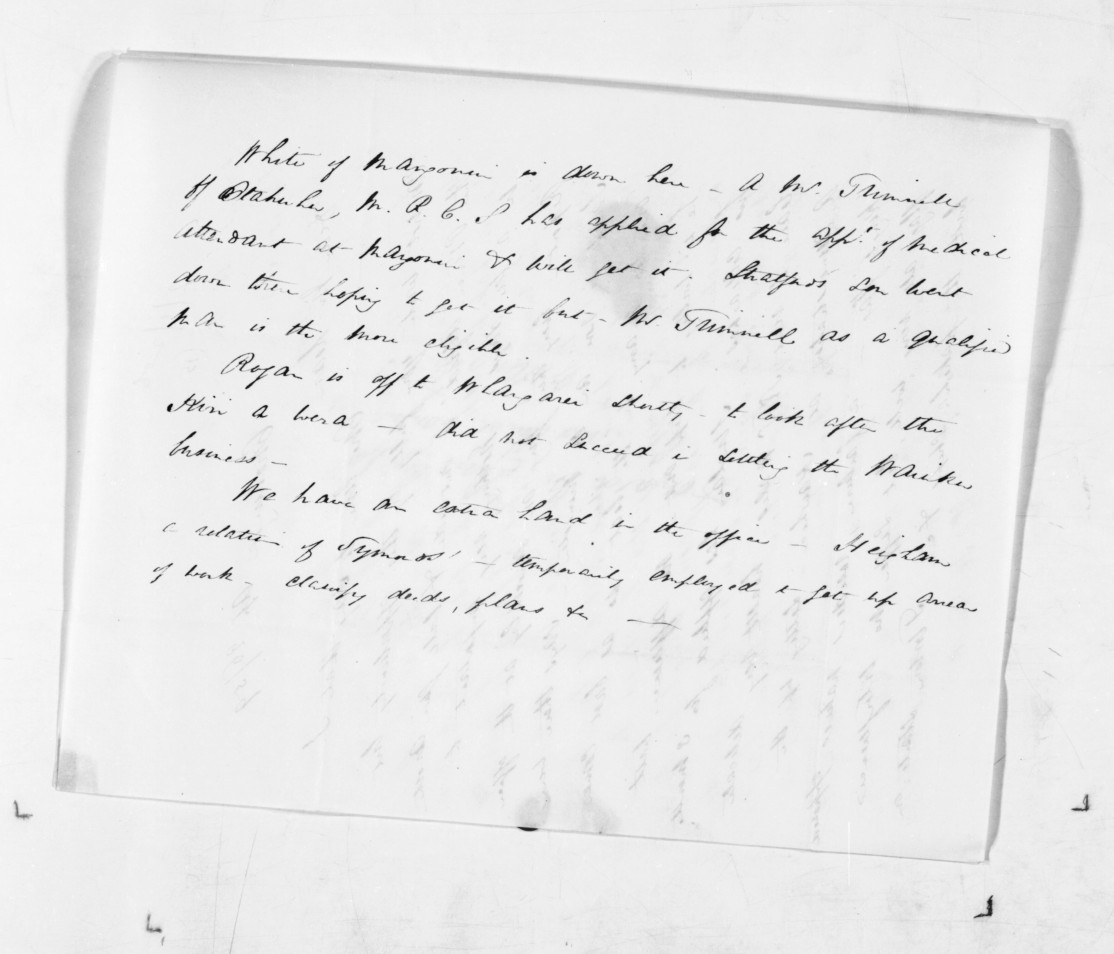 White of Mangonui is down here - A Mr. Trimnell
of Otahuhu, M. R. C. S has applied for the appt. of Medical
attendant at Mangonui & will get it. Stratfords son went
down there hoping to get it but - Mr Trimnell as a qualified
man is the more eligible.
Rogan is off to Whangarei shortly - to look after the
Kiri a wera - did not succeed in settling the Waiuku
business -
We have an extra hand in the office - Heigham
a relation of Symonds' - temporarily employed to get up arrears
of work - classify deeds, plans &c —